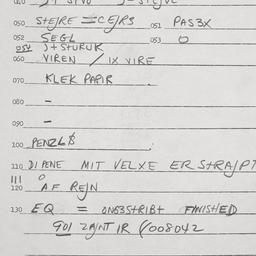 050 S+EJRE = CEJRS 051 PAS3X
052 SEGL 053 O
054 J+STURUK
060 VIREN / IX VIRE
070 KLEK PAPIR
080 -
090 -
100 PENZL
110 DIPENE MIT VELXE ERSTRAJPT
111 O
120 AF REJN
130 EQ = ONS3STRIBT FINISHED
901 ZAJNT IR 008042